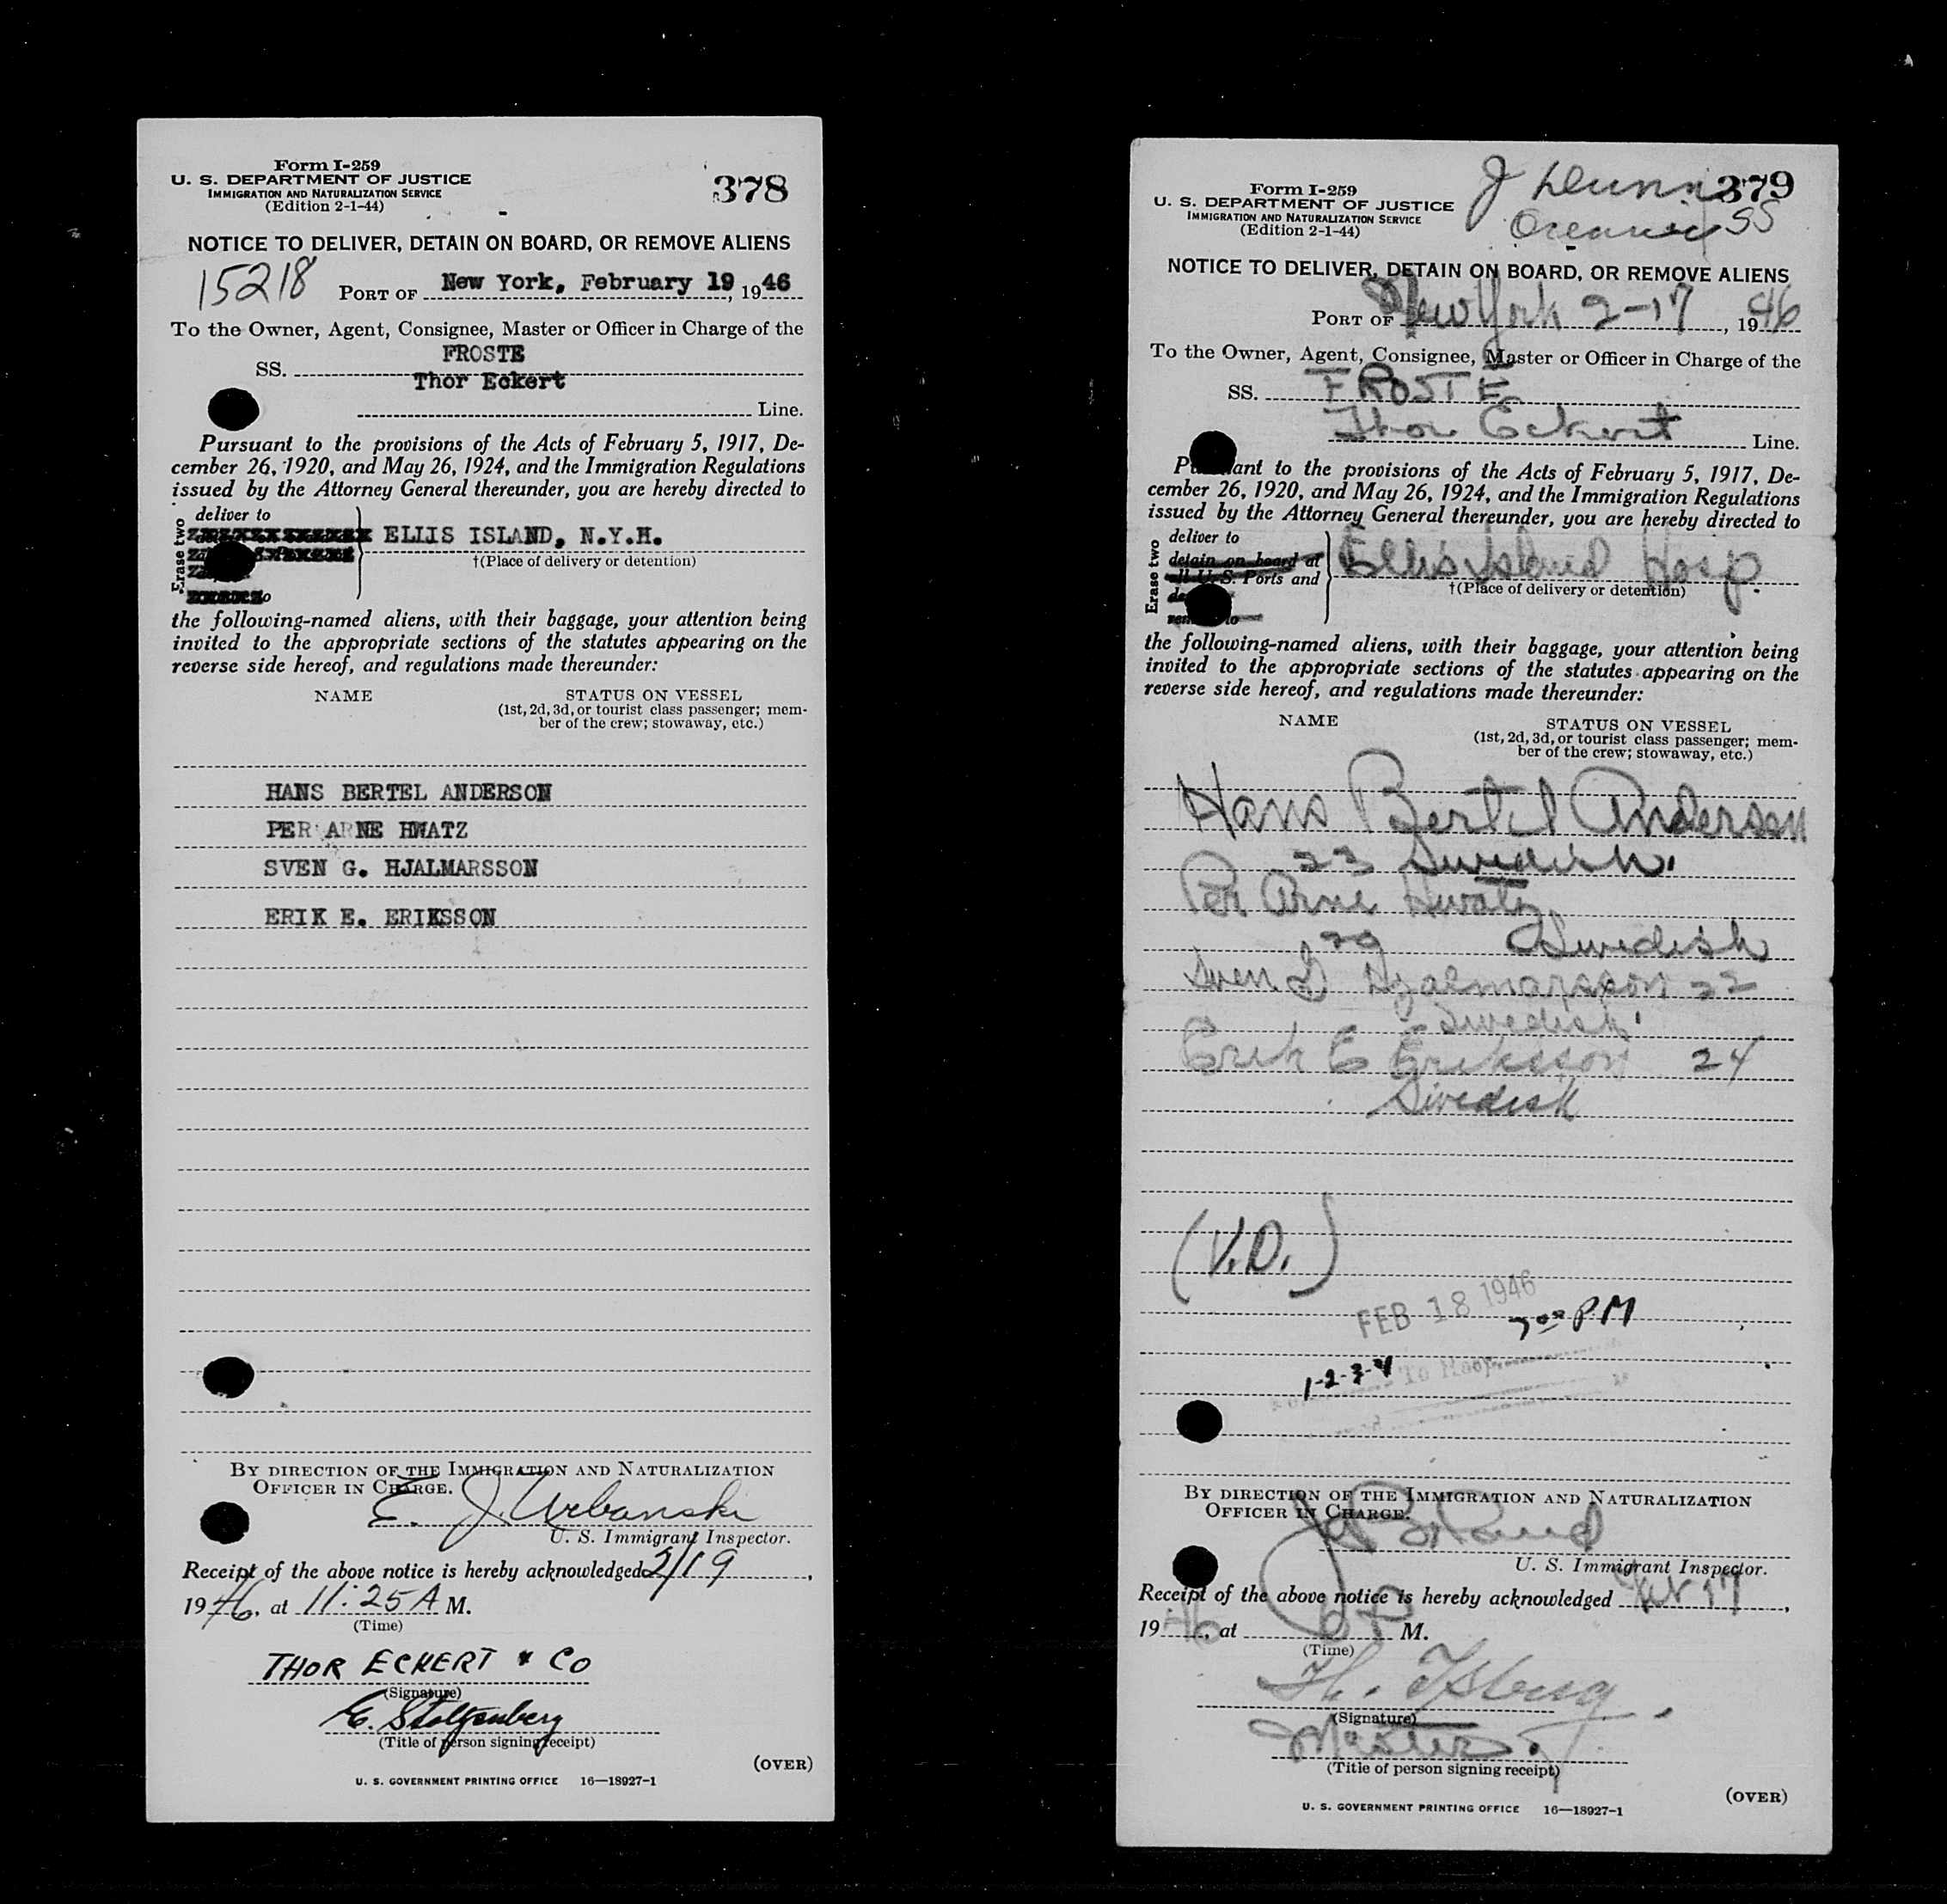 Form I-259
U. S. DEPARTMENT OF JUSTICE
IMMIGRATION AND NATURALIZATION SERVICE
(Edition 2-1-44)
378
NOTICE TO DELIVER, DETAIN ON BOARD, OR REMOVE ALIENS
15218 PORT OF New York, February 19, 1946
To the Owner, Agent, Consignee, Master or Officer in Charge of the
SS. FROSTE
Thor Eckert
Line.
Pursuant to the provisions of the Acts of February 5, 1917, De-
cember 26, 1920, and May 26, 1924, and the Immigration Regulations
issued by the Attorney General thereunder, you are hereby directed to
Erase two
deliver to
ELLIS ISLAND, N.Y.H.
†(Place of delivery or detention)
the following-named aliens, with their baggage, your attention being
invited to the appropriate sections of the statutes appearing on the
reverse side hereof, and regulations made thereunder:
NAME
STATUS ON VESSEL
(1st, 2d, 3d, or tourist class passenger; mem-
ber of the crew; stowaway, etc.)
HANS BERTEL ANDERSON
PER ARNE HWATZ
SVEN G. HJALMARSSON
ERIK E. ERIKSSON
BY DIRECTION OF THE IMMIGRATION AND NATURALIZATION
OFFICER IN CHARGE.
E. J. Urbanski
U. S. Immigrant Inspector.
Receipt of the above notice is hereby acknowledged 2/19,
1946, at 11:25 A M.
(Time)
THOR ECKERT & CO
(Signature)
E. Stoltenberg
(Title of person signing receipt)
(OVER)
U. S. GOVERNMENT PRINTING OFFICE 16—18927-1
Form I-259
U. S. DEPARTMENT OF JUSTICE
IMMIGRATION AND NATURALIZATION SERVICE
(Edition 2-1-44)
J Dunn
379
SS
NOTICE TO DELIVER, DETAIN ON BOARD, OR REMOVE ALIENS
PORT OF New York 2-17, 1946
To the Owner, Agent, Consignee, Master or Officer in Charge of the
SS. FROSTE
Thor Eckert Line.
Pursuant to the provisions of the Acts of February 5, 1917, De-
cember 26, 1920, and May 26, 1924, and the Immigration Regulations
issued by the Attorney General thereunder, you are hereby directed to
Erase two
deliver to
detain on board at
all U. S. Ports and
Ellis Island Hosp.
†(Place of delivery or detention)
the following-named aliens, with their baggage, your attention being
invited to the appropriate sections of the statutes appearing on the
reverse side hereof, and regulations made thereunder:
NAME
STATUS ON VESSEL
(1st, 2d, 3d, or tourist class passenger; mem-
ber of the crew; stowaway, etc.)
Hans Bertel Anderson
23 Swedish
Per Arne Hwatz
29 Swedish
Sven G Hjalmarsson 22
Swedish
Erik E Eriksson 24
Swedish
(V.D.)
FEB 18 1946
7 00 PM
1-2-3-4
To Hosp.
BY DIRECTION OF THE IMMIGRATION AND NATURALIZATION
OFFICER IN CHARGE.
U. S. Immigrant Inspector.
Receipt of the above notice is hereby acknowledged Feb 17,
1946, at M.
(Time)
(Signature)
Master.
(Title of person signing receipt)
(OVER)
U. S. GOVERNMENT PRINTING OFFICE 16—18927-1